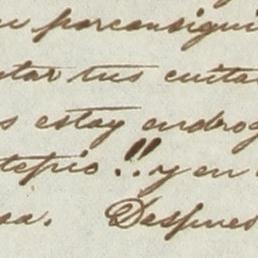 porconsigui
tar tus cuita
s estoy endrog
tepio!! y en
sa. Despues